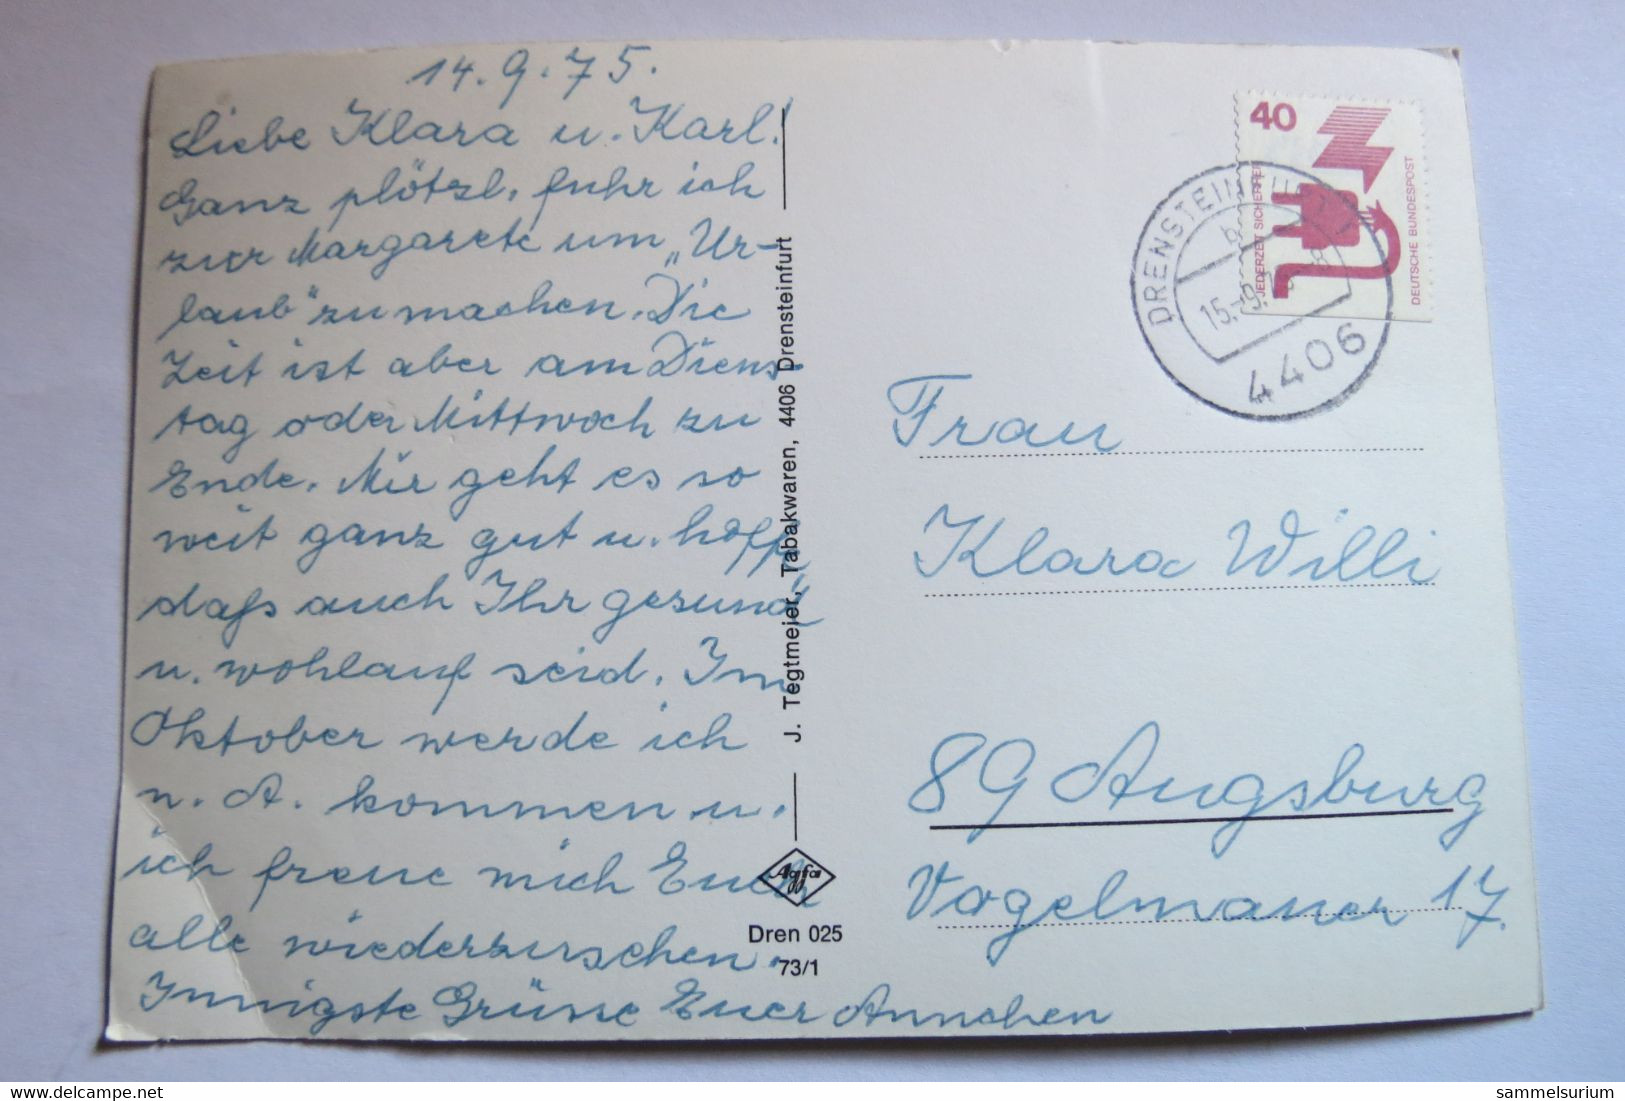 14.9.75.
Liebe Klara u. Karl!
Ganz plötzl. fuhr ich
zur Margarete um „Ur-
laub" zu machen. Die
Zeit ist aber am Diens-
tag oder Mittwoch zu
Ende. Mir geht es so
weit ganz gut u. hoffe
daß auch Ihr gesund
u. wohlauf seid. Im
Oktober werde ich
n. A. kommen u.
ich freue mich Euch
alle wiederzusehen.
Innigste Grüsse Euer Annchen
J. Tegtmeier, Tabakwaren, 4406 Drensteinfurt
Agfa
Dren 025
73/1
40
JEDERZEIT SICHERHEIT
DEUTSCHE BUNDESPOST
DRENSTEINFURT
b
15.-9.
4406
Frau
Klara Willi
89 Augsburg
Vogelmauer 17.
www.delcampe.net
sammelsurium